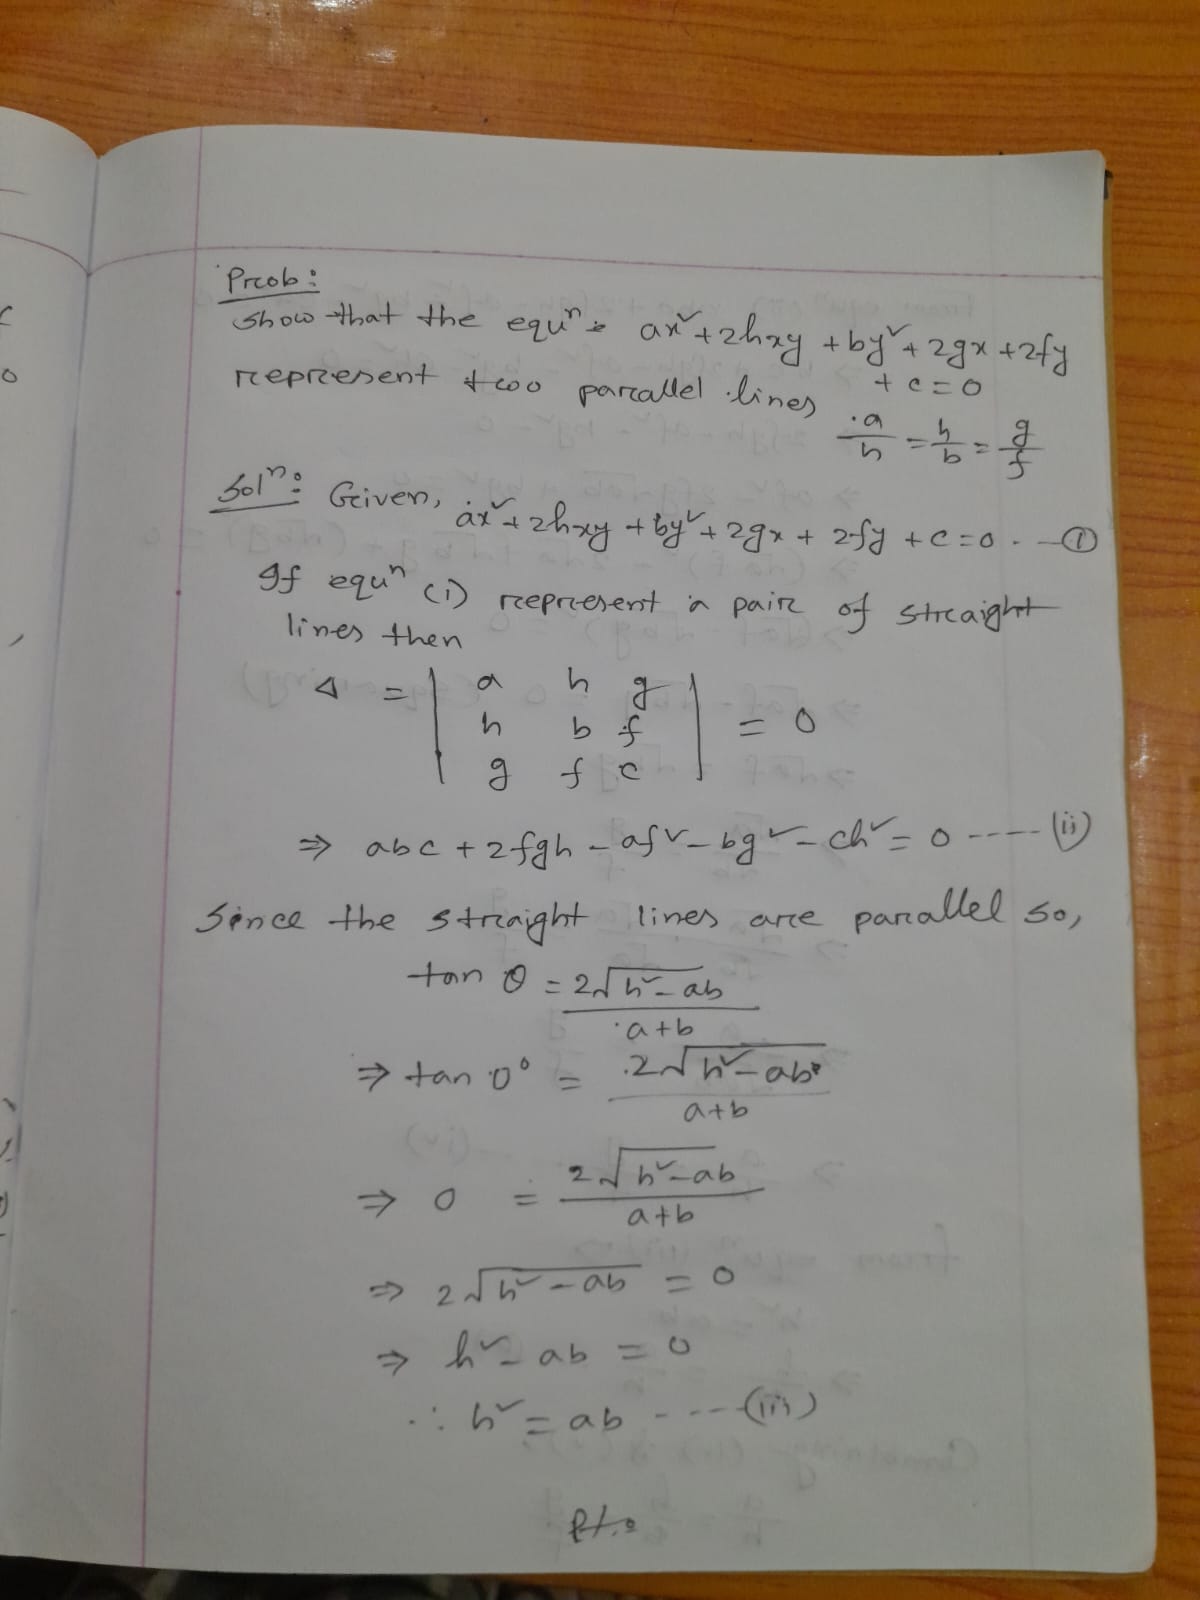 Prob:
Show that the equⁿ: ax²+2hxy+by²+2gx+2fy
+c=0
represent two parallel lines
a/h = h/b = g/f
Solⁿ: Given, ax²+2hxy+by²+2gx+2fy+c=0 --- (i)
If equⁿ (i) represent a pair of straight
lines then
Δ = | a h g |
| h b f | = 0
| g f c |
⇒ abc+2fgh-af²-bg²-ch²=0 ---- (ii)
Since the straight lines are parallel so,
tan θ = 2√h²-ab / a+b
⇒ tan 0° = 2√h²-ab / a+b
⇒ 0 = 2√h²-ab / a+b
⇒ 2√h²-ab = 0
⇒ h²-ab = 0
∴ h²=ab ---- (iii)